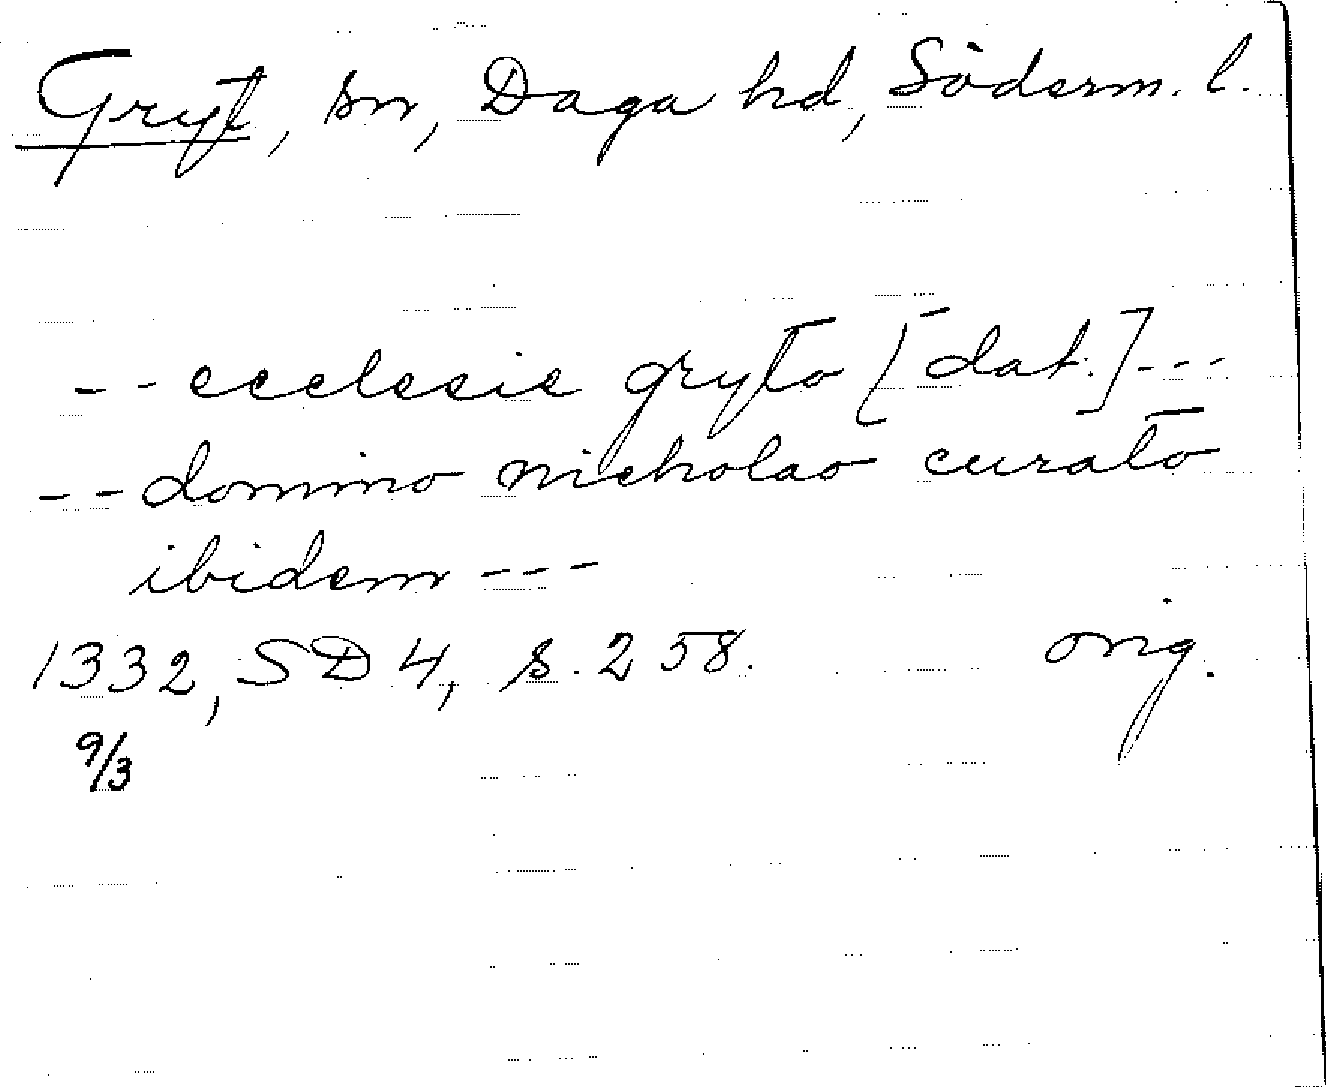 Gryt, sn, Daga hd, Söderm. l.
-- ecclesie gryto [dat.] ---
-- domino nicholao curato
ibidem ---
1332, SD 4, s. 258. orig.
9/3